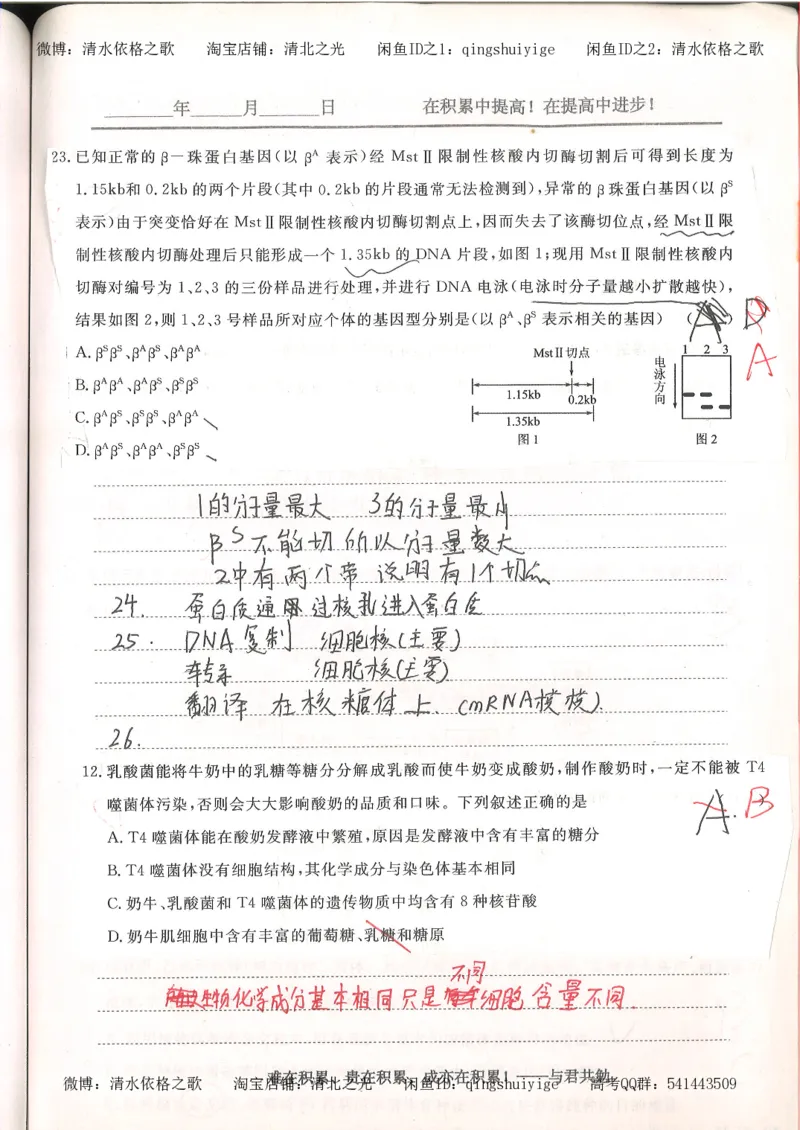 微博：清水依格之歌 淘宝店铺：清北之光 闲鱼ID之1：qingshuiyige 闲鱼ID之2：清水依格之歌
年 月 日 在积累中提高！在提高中进步！
23.已知正常的β—珠蛋白基因(以 βᴬ 表示)经 MstⅡ限制性核酸内切酶切割后可得到长度为
1.15kb和 0.2kb 的两个片段(其中 0.2kb 的片段通常无法检测到),异常的β珠蛋白基因(以 βˢ
表示)由于突变恰好在 MstⅡ限制性核酸内切酶切割点上,因而失去了该酶切位点,经 MstⅡ限
制性核酸内切酶处理后只能形成一个 1.35kb 的 DNA 片段,如图 1;现用 MstⅡ限制性核酸内
切酶对编号为 1、2、3 的三份样品进行处理,并进行 DNA 电泳(电泳时分子量越小扩散越快),
结果如图 2,则 1、2、3 号样品所对应个体的基因型分别是(以 βᴬ、βˢ 表示相关的基因) ( A ) D
A
A.βˢβˢ、βᴬβˢ、βᴬβᴬ
B.βᴬβᴬ、βᴬβˢ、βˢβˢ
C.βᴬβˢ、βˢβˢ、βᴬβᴬ
D.βᴬβˢ、βᴬβᴬ、βˢβˢ
MstⅡ切点
1.15kb 0.2kb
1.35kb
图1
1 2 3
电泳方向
图2
1的分子量最大 3的分子量最小
βˢ不能切 所以分子量数大
2中有两个带 说明有1个切
24. 蛋白质通 过核孔进入蛋白质
25. DNA复制 细胞核(主要)
转录 细胞核(主要)
翻译 在核糖体上 (mRNA模板).
26.
12.乳酸菌能将牛奶中的乳糖等糖分分解成乳酸而使牛奶变成酸奶,制作酸奶时,一定不能被 T4
噬菌体污染,否则会大大影响酸奶的品质和口味。下列叙述正确的是
A. B
A.T4 噬菌体能在酸奶发酵液中繁殖,原因是发酵液中含有丰富的糖分
B.T4 噬菌体没有细胞结构,其化学成分与染色体基本相同
C.奶牛、乳酸菌和 T4 噬菌体的遗传物质中均含有 8 种核苷酸
D.奶牛肌细胞中含有丰富的葡萄糖、乳糖和糖原
不同
生物化学成分基本相同只是 细胞含量不同.
难在积累，贵在积累，成亦在积累！——与君共勉
微博：清水依格之歌 淘宝店铺：清北之光 闲鱼ID：qingshuiyige 高考QQ群：541443509